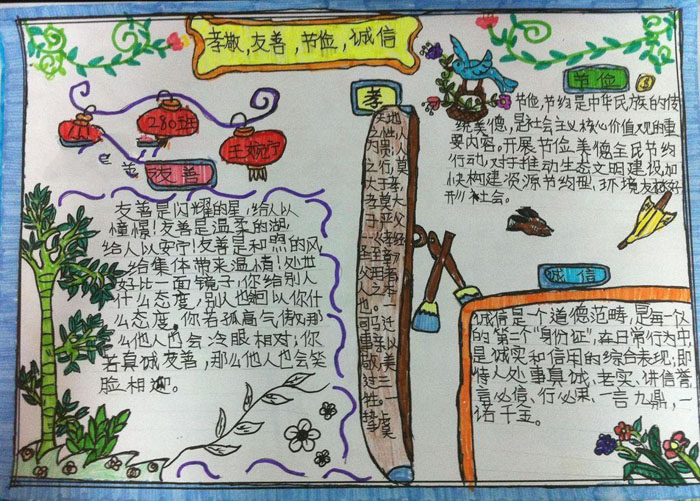 孝敬,友善,节俭,诚信
280班
友善
友善是闪耀的星,给人以
憧憬!友善是温柔的湖,
给人以安宁!友善是和煦的风,
给集体带来温情!处世
好比一面镜子,你给别人
什么态度,别人也会回以你什
么态度。你若孤高气傲,那
么他人也会冷眼相对;你
若真诚友善,那么他人也会笑
脸相迎。
孝
天地之性,人为贵。人之行,莫大于孝,孝莫大
节俭
节俭,节约是中华民族的传
统美德,是社会主义核心价值观的重
要内容。开展节俭美德全民节约
行动,对于推动生态文明建设,加
快构建资源节约型、环境友好
型社会。
诚信
诚信是一个道德范畴,是每一人
的第二个“身份证”,在日常行为中
是诚实和信用的综合表现;即
待人处事真诚、老实、讲信誉,
言必信、行必果、一言九鼎,一
诺千金。